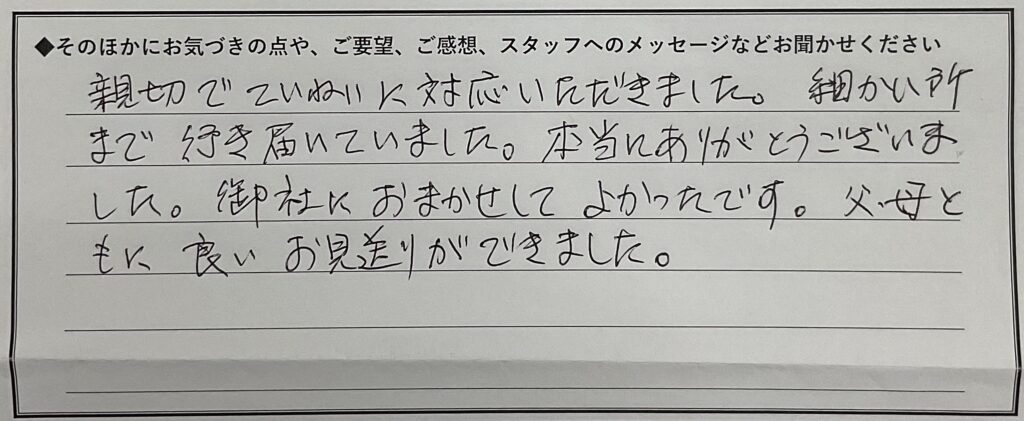 ◆そのほかにお気づきの点や、ご要望、ご感想、スタッフへのメッセージなどお聞かせください
親切でていねいに対応いただきました。細かい所
まで行き届いていました。本当にありがとうございま
した。御社におまかせしてよかったです。父・母と
もに良いお見送りができました。